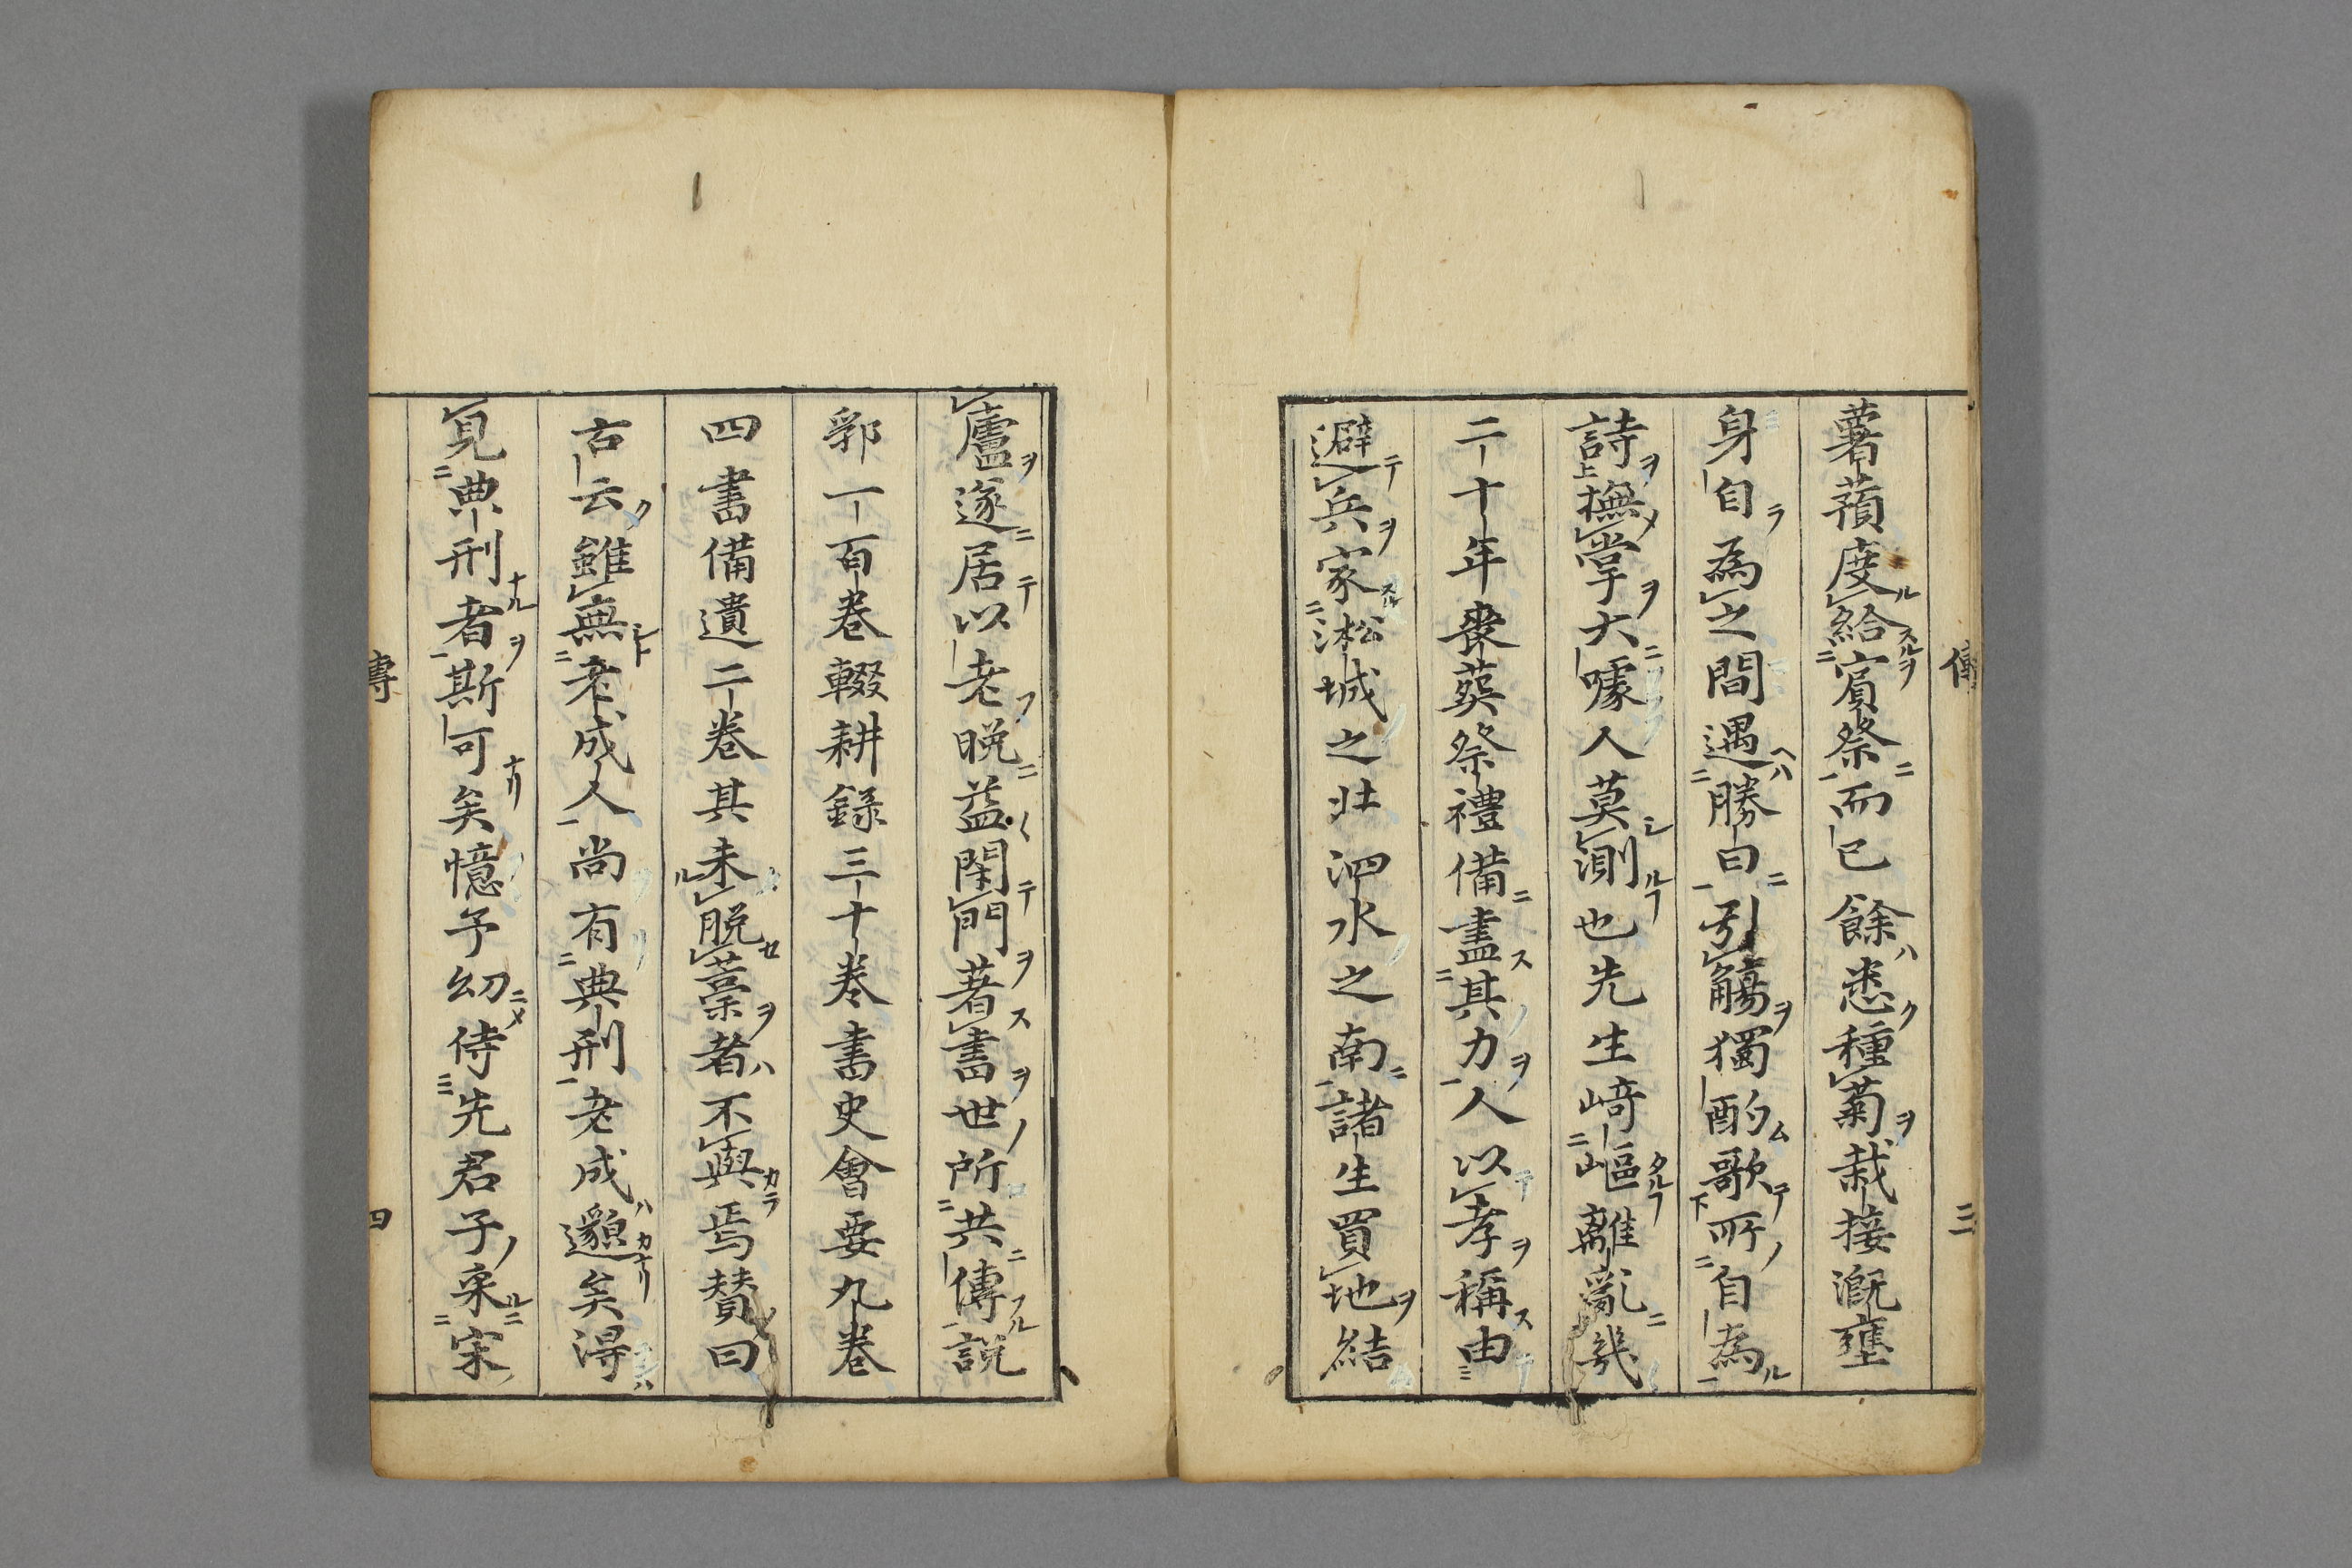 傳 三
薯蕷度給賓祭而已餘悉種菊栽接漑壅
身自為之間遇勝日引觴獨酌歌所自為
詩撫掌大噱人莫測也先生﨑嶇離亂幾
二十年喪葬祭禮備盡其力人以孝稱由
避兵家淞城之北泗水之南諸生買地結
廬遂居以老晩益閉門著書世所共傳說
郛一百卷輟耕錄三十卷書史會要九卷
四書備遺二卷其未脱藁者不與焉賛曰
古云雖無老成人尚有典刑老成邈矣得
見典刑者斯可矣憶予幼侍先君子來宋
傳 四